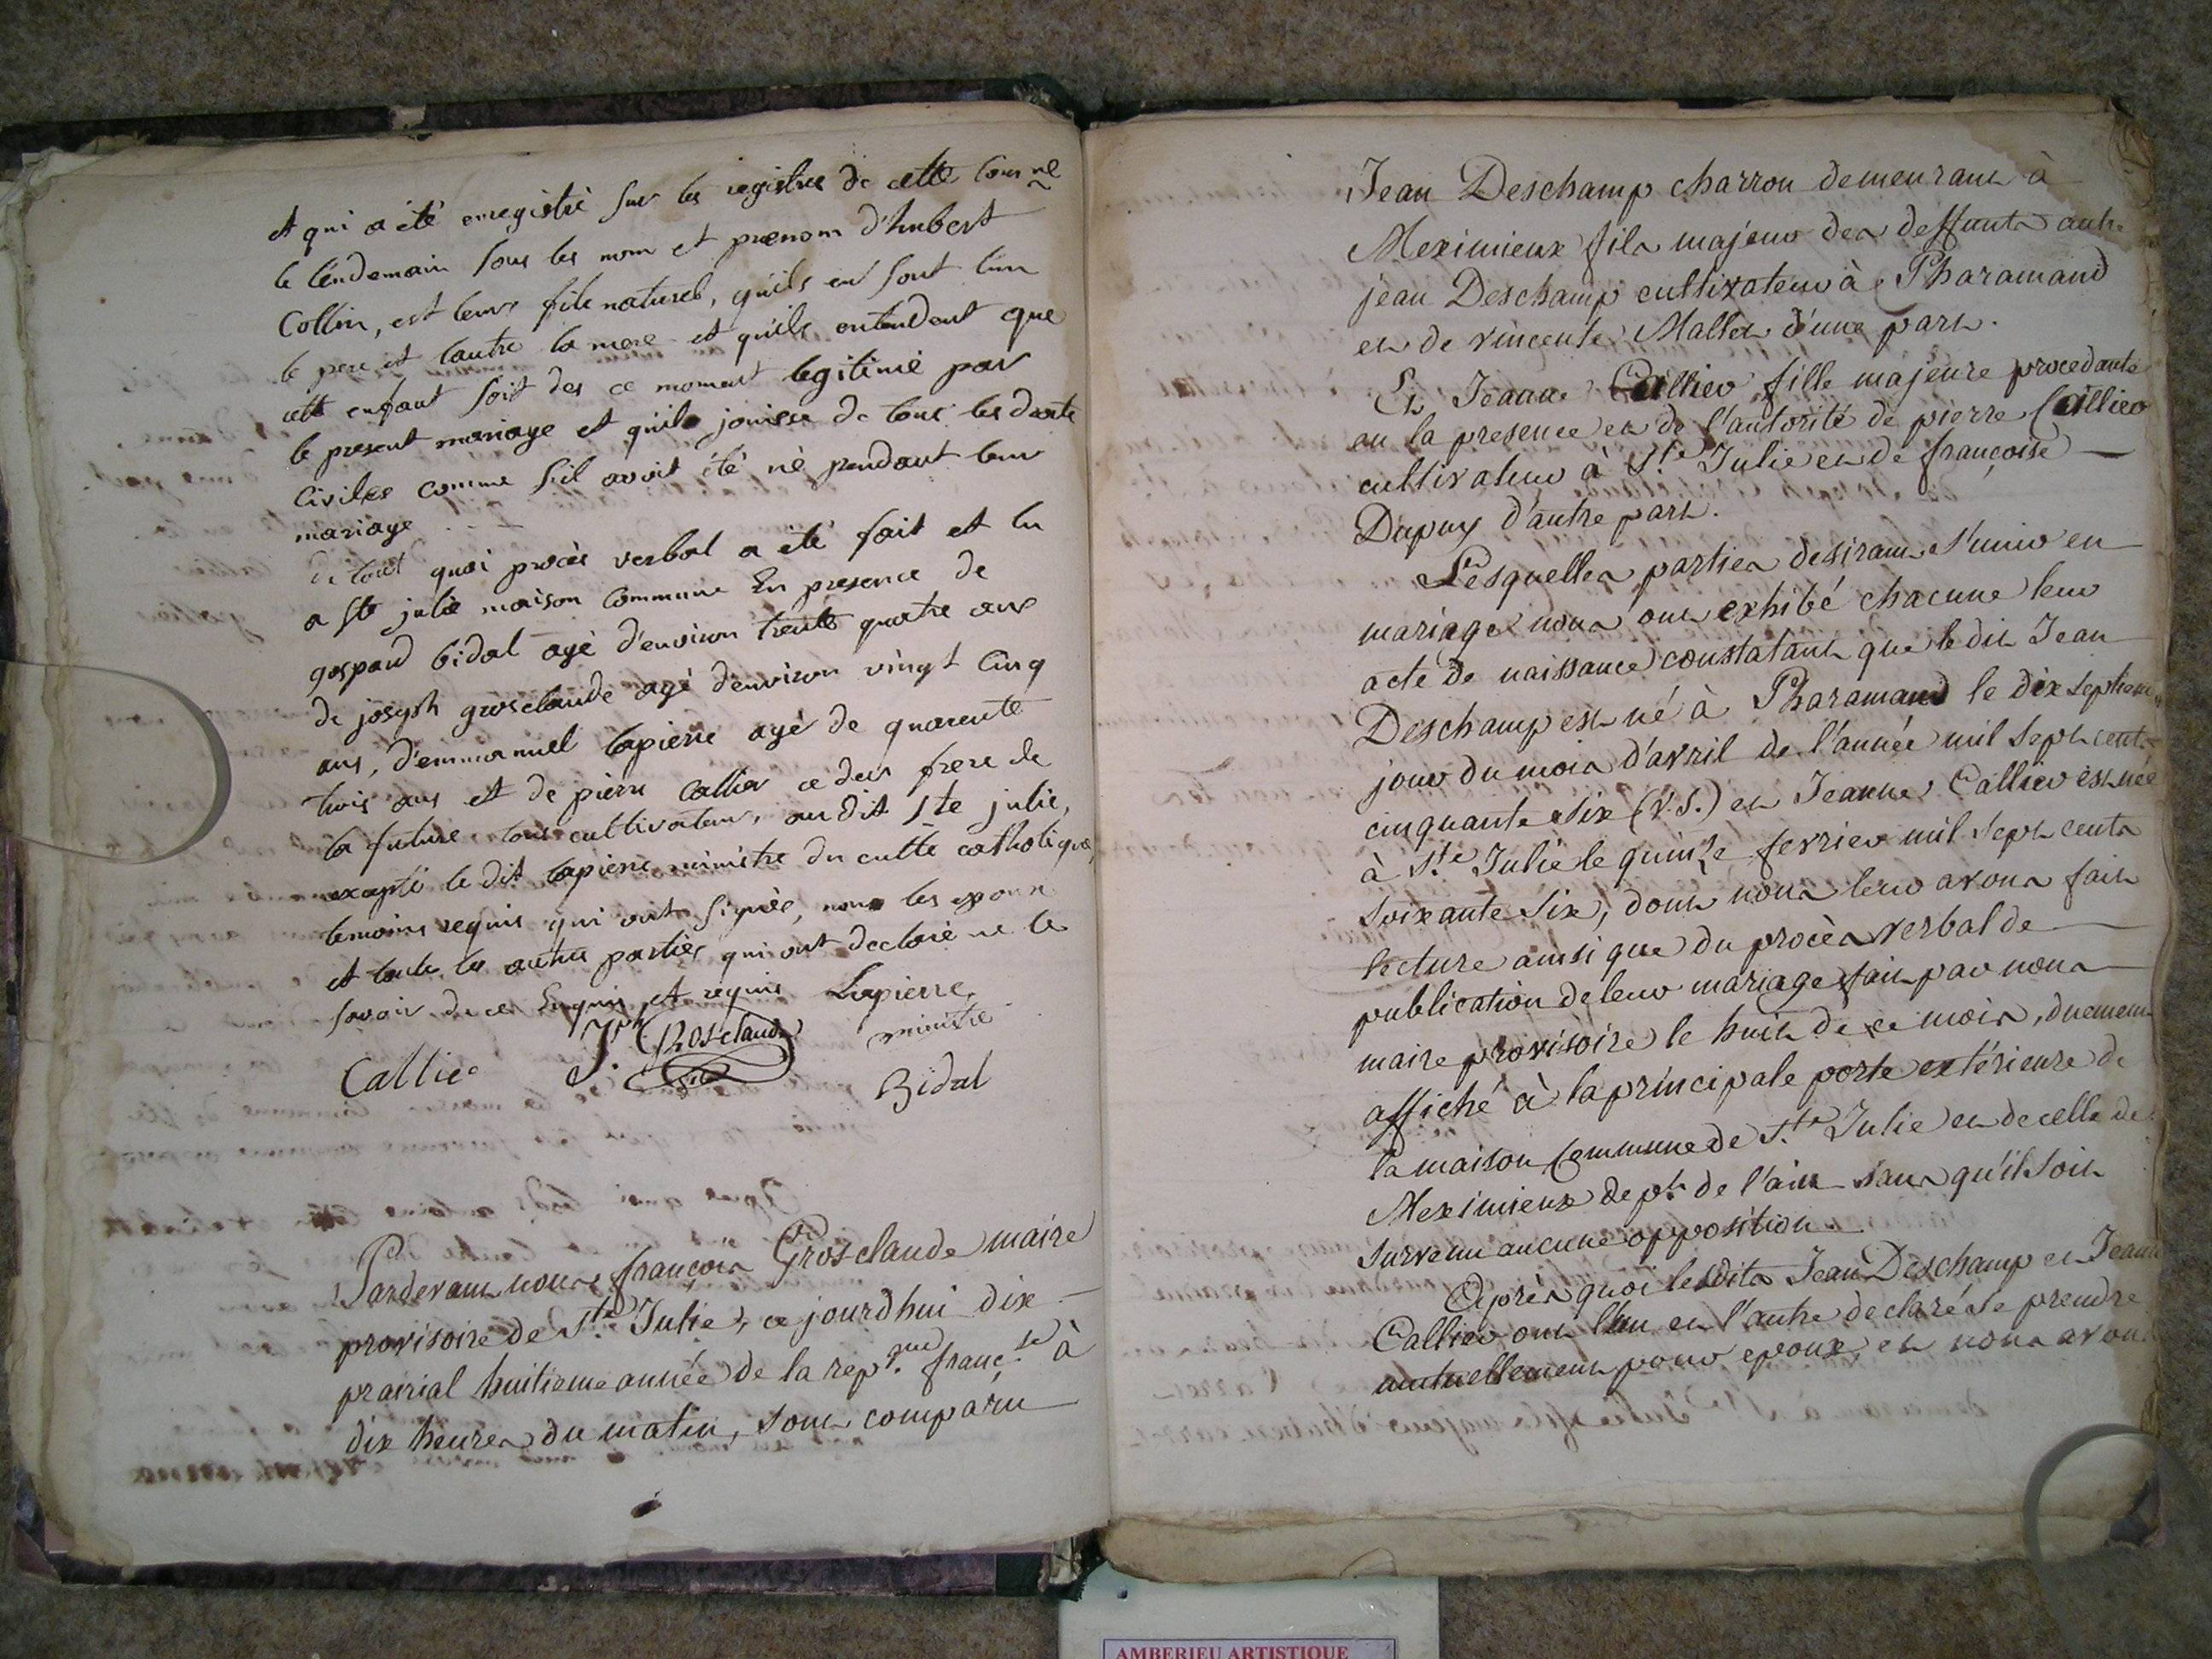 et qui a été enregistré sur les registres de cette comne
le lendemain sous les nom et prenom d'hubert
Collin, est leur fils naturel, quils en sont l'un
le pere et lautre la mere et quils entendent que
cett enfant soit des ce moment legitimé par
le present mariage et quil jouisse de tous les droits
Civiles comme s'il avoit été né pendant leur
mariage
de tout quoi procès verbal a été fait et lu
a Ste julie maison Commune En presence de
gaspard bidal agé d'environ trente quatre ans
de joseph grosclaude agé d'environ vingt cinq
ans, d'emmanuel lapierre agé de quarente
trois ans et de pierre Callier ce der frere de
la future tous cultivateur, au dit Ste julie,
excepté le dit lapierre ministre du culte catholique,
temoins requis qui ont signés, non les epoux
et toute les autres parties qui ont declaré ne le
savoir de ce Enquis et requis
Lapierre
ministre
Callier
Jph Grosclaude
Bidal
Pardevant nous françois Grosclaude maire
provisoire de Ste Julie, ce jourd'hui dix
prairial huitieme année de la repque françse à
dix heures du matin, sont comparu
Jean Deschamp charron demeurant à
Meximieux fils majeur des deffunts autre
jean Deschamp cultivateur à Pharamand
et de vincente Mallet d'une part.
Et Jeanne Callier fille majeure procedante
en la presence et de l'autorité de pierre Callier
cultivateur à Ste Julie et de françoise
Dupuy d'autre part.
Lesquelles parties desirant s'unir en
mariage nous ont exhibé chacune leur
acte de naissance constatant que le dit Jean
Deschamp est né à Pharamand le dix septieme
jour du mois d'avril de l'année mil sept cents
cinquante six (V.S.) et Jeanne Callier est née
à Ste Julie le quinze fevrier mil sept cents
soixante six, dont nous leur avons fait
lecture ainsi que du procès verbal de
publication de leur mariage fait par nous
maire provisoire le huit de ce mois, duement
affiché à la principale porte extérieure de
la maison Commune de Ste Julie et de celle de
Meximieux dept de l'ain sans qu'il soit
survenu aucune opposition
Après quoi lesdits Jean Deschamp et Jeanne
Callier ont l'un et l'autre declaré se prendre
mutuellement pour epoux, et nous avons
AMBERIEU ARTISTIQUE